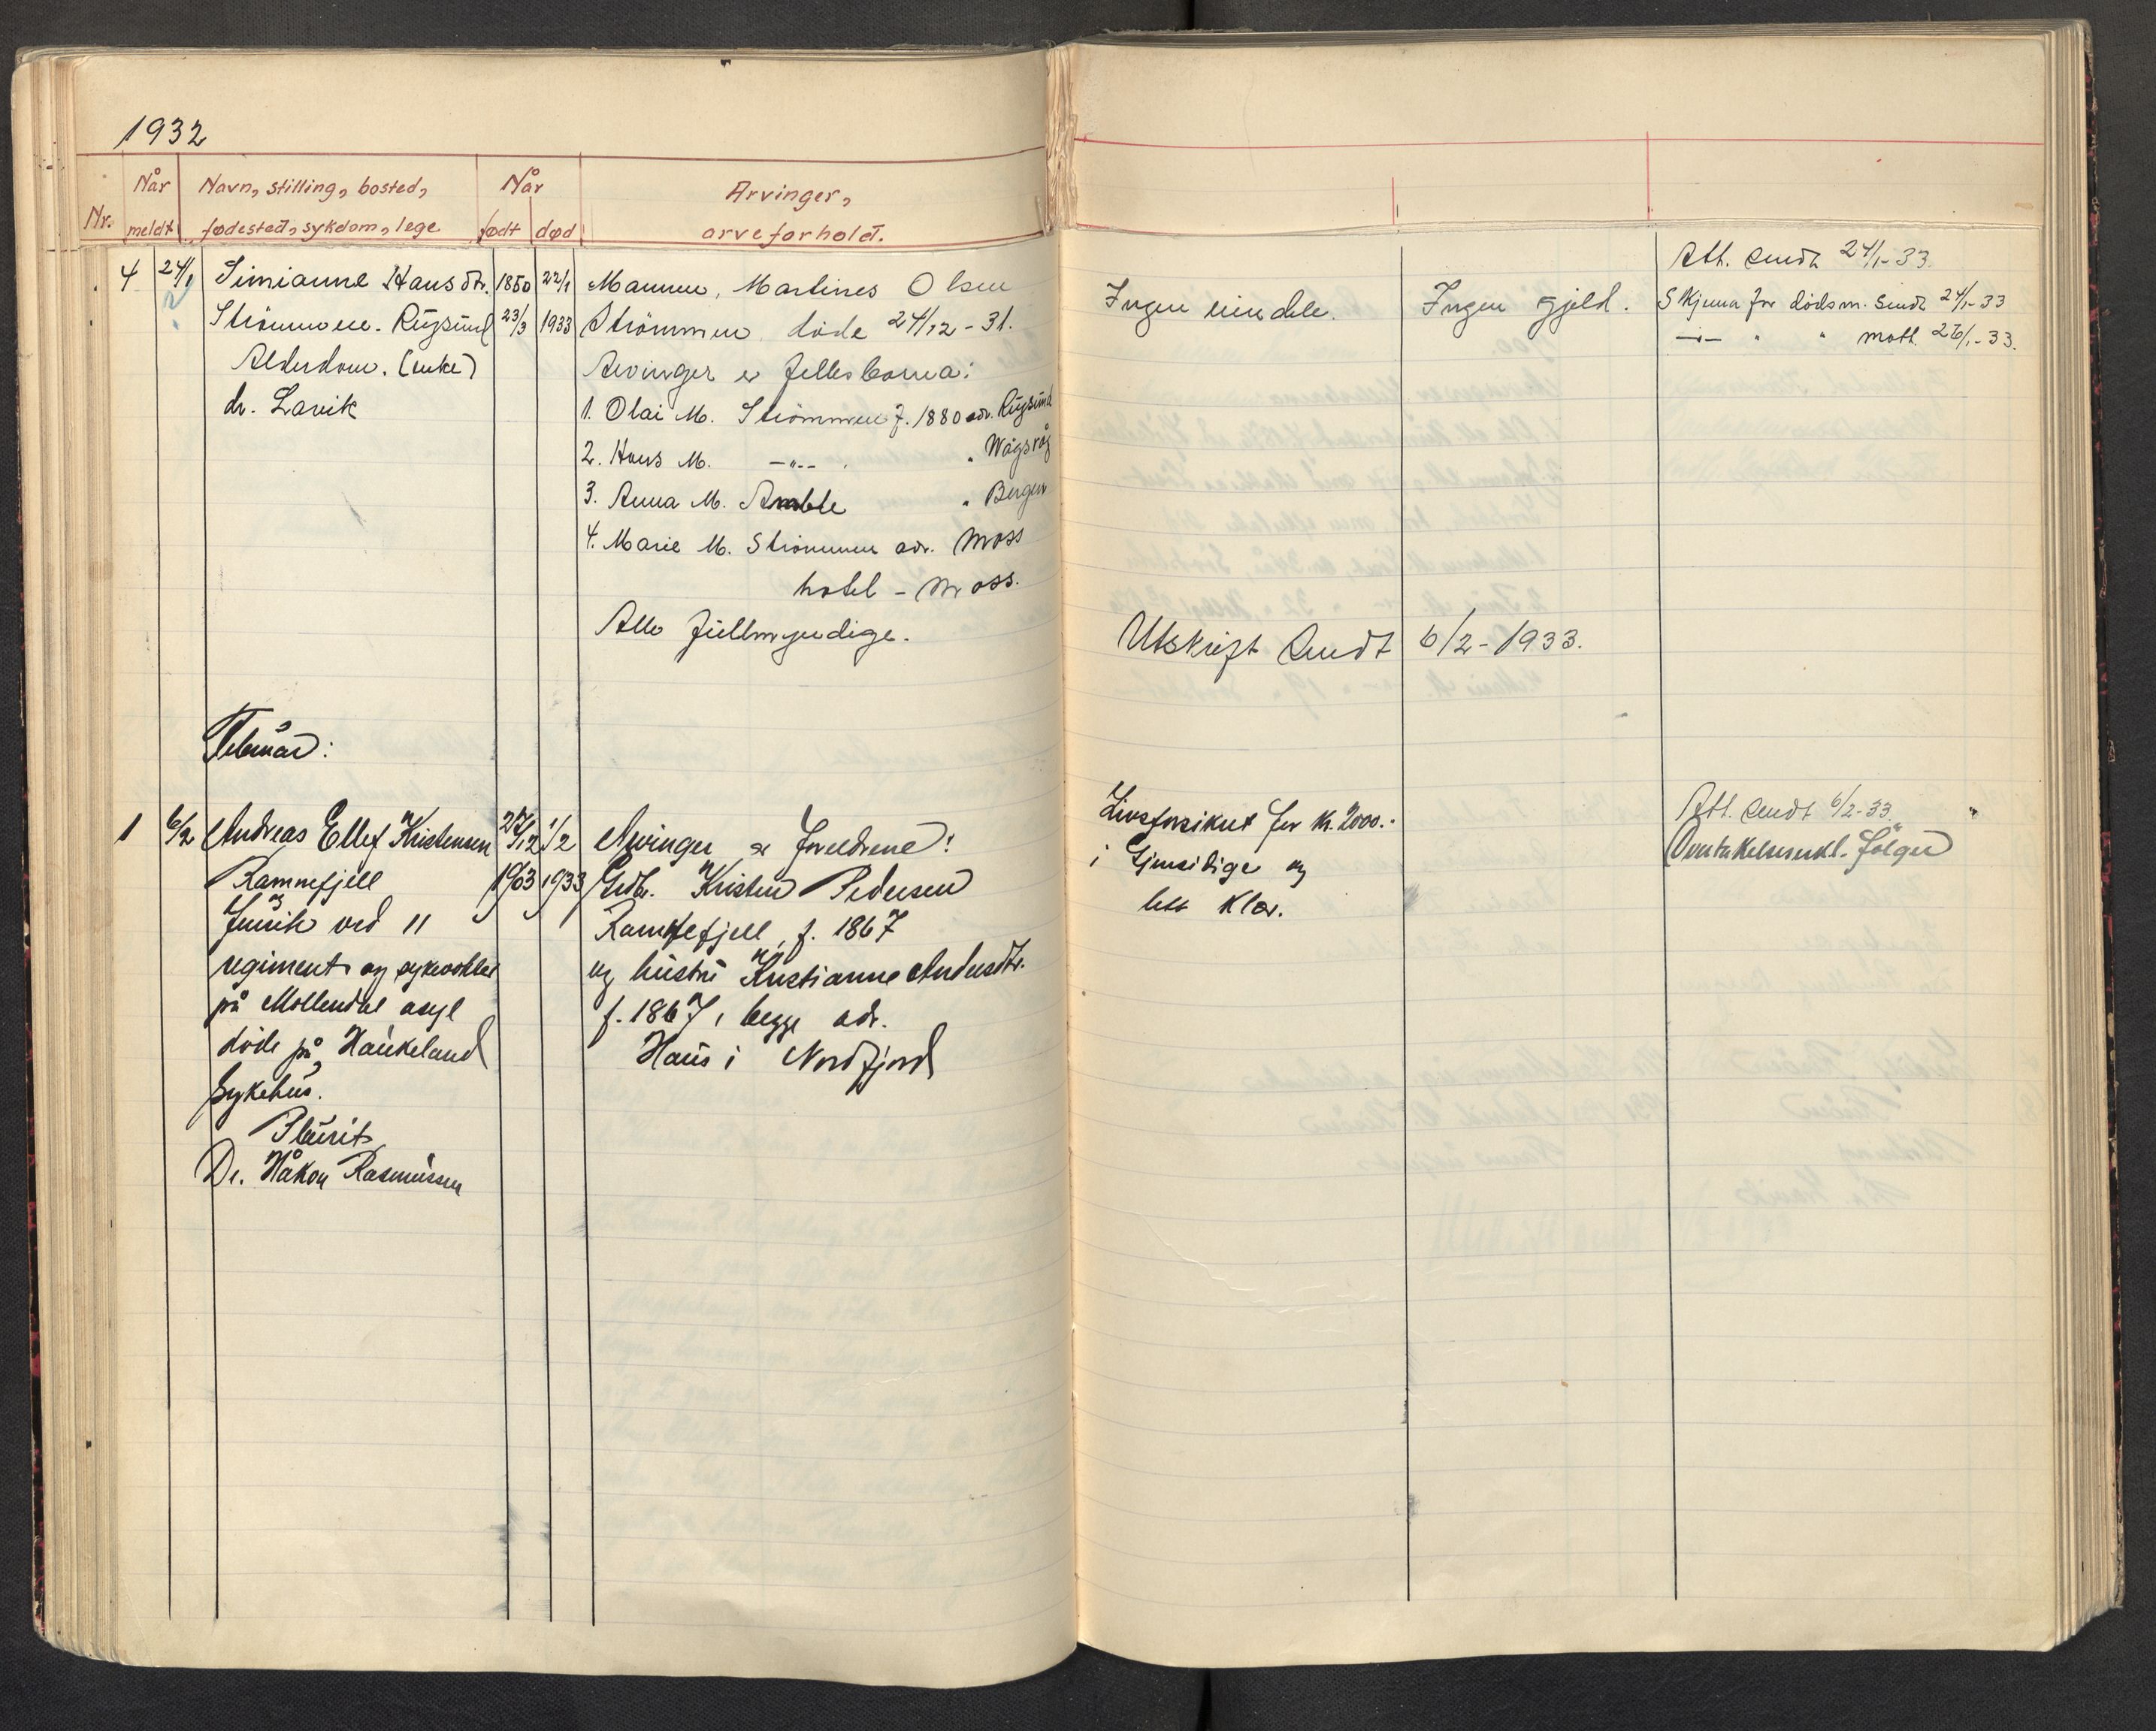 1932
Nr.
Når
meldt
Navn, stilling, bosted,
fødested, sykdom, lege
Når
født død
Arvinger,
arveforhold.
4 24/1 Simianne Hansdtr. 1850 22/1 Mannen, Martines Olsen
Strömmen. Rugsund 23/3 1933 Strömmen döde 24/12-31.
Alderdom. (enke) Arvinger er fellesborna:
dr. Lavik 1. Olai M. Strömmen f. 1880 adr. Rugsund
2. Hans M. -"- " Wågsvåg
3. Anna M. Amble " Bergen
4. Marie M. Strömmen adr. Moss
hotel - Moss.
Alle fullmyndige.
Februar:
1 6/2 Andreas Ellef Kristensen 27/12 1/2 Arvinger er foreldrene:
Ramnefjell 1903 1933 Grdbr. Kristen Pedersen
Furir ved 11 Ramnefjell, f. 1867
regiment og sykevokter og hustru Kristianne Andersdtr.
på Möllendal asyl f. 1867, begge adr.
döde på Haukeland Haus i Nordfjord
Sykehus.
Pleurit
Dr. Håkon Rasmussen
Ingen eiendele. Ingen gjeld.
Att. sendt 24/1-33.
Skjema for dödsm. sendt 24/1-33
-"- " " mott. 26/1-33.
Utskrift sendt 6/2-1933.
Livsforsikret for kr. 2000.-
i Gjensidige og
litt klær.
Att. sendt 6/2-33.
Overtakelseserkl. fölger